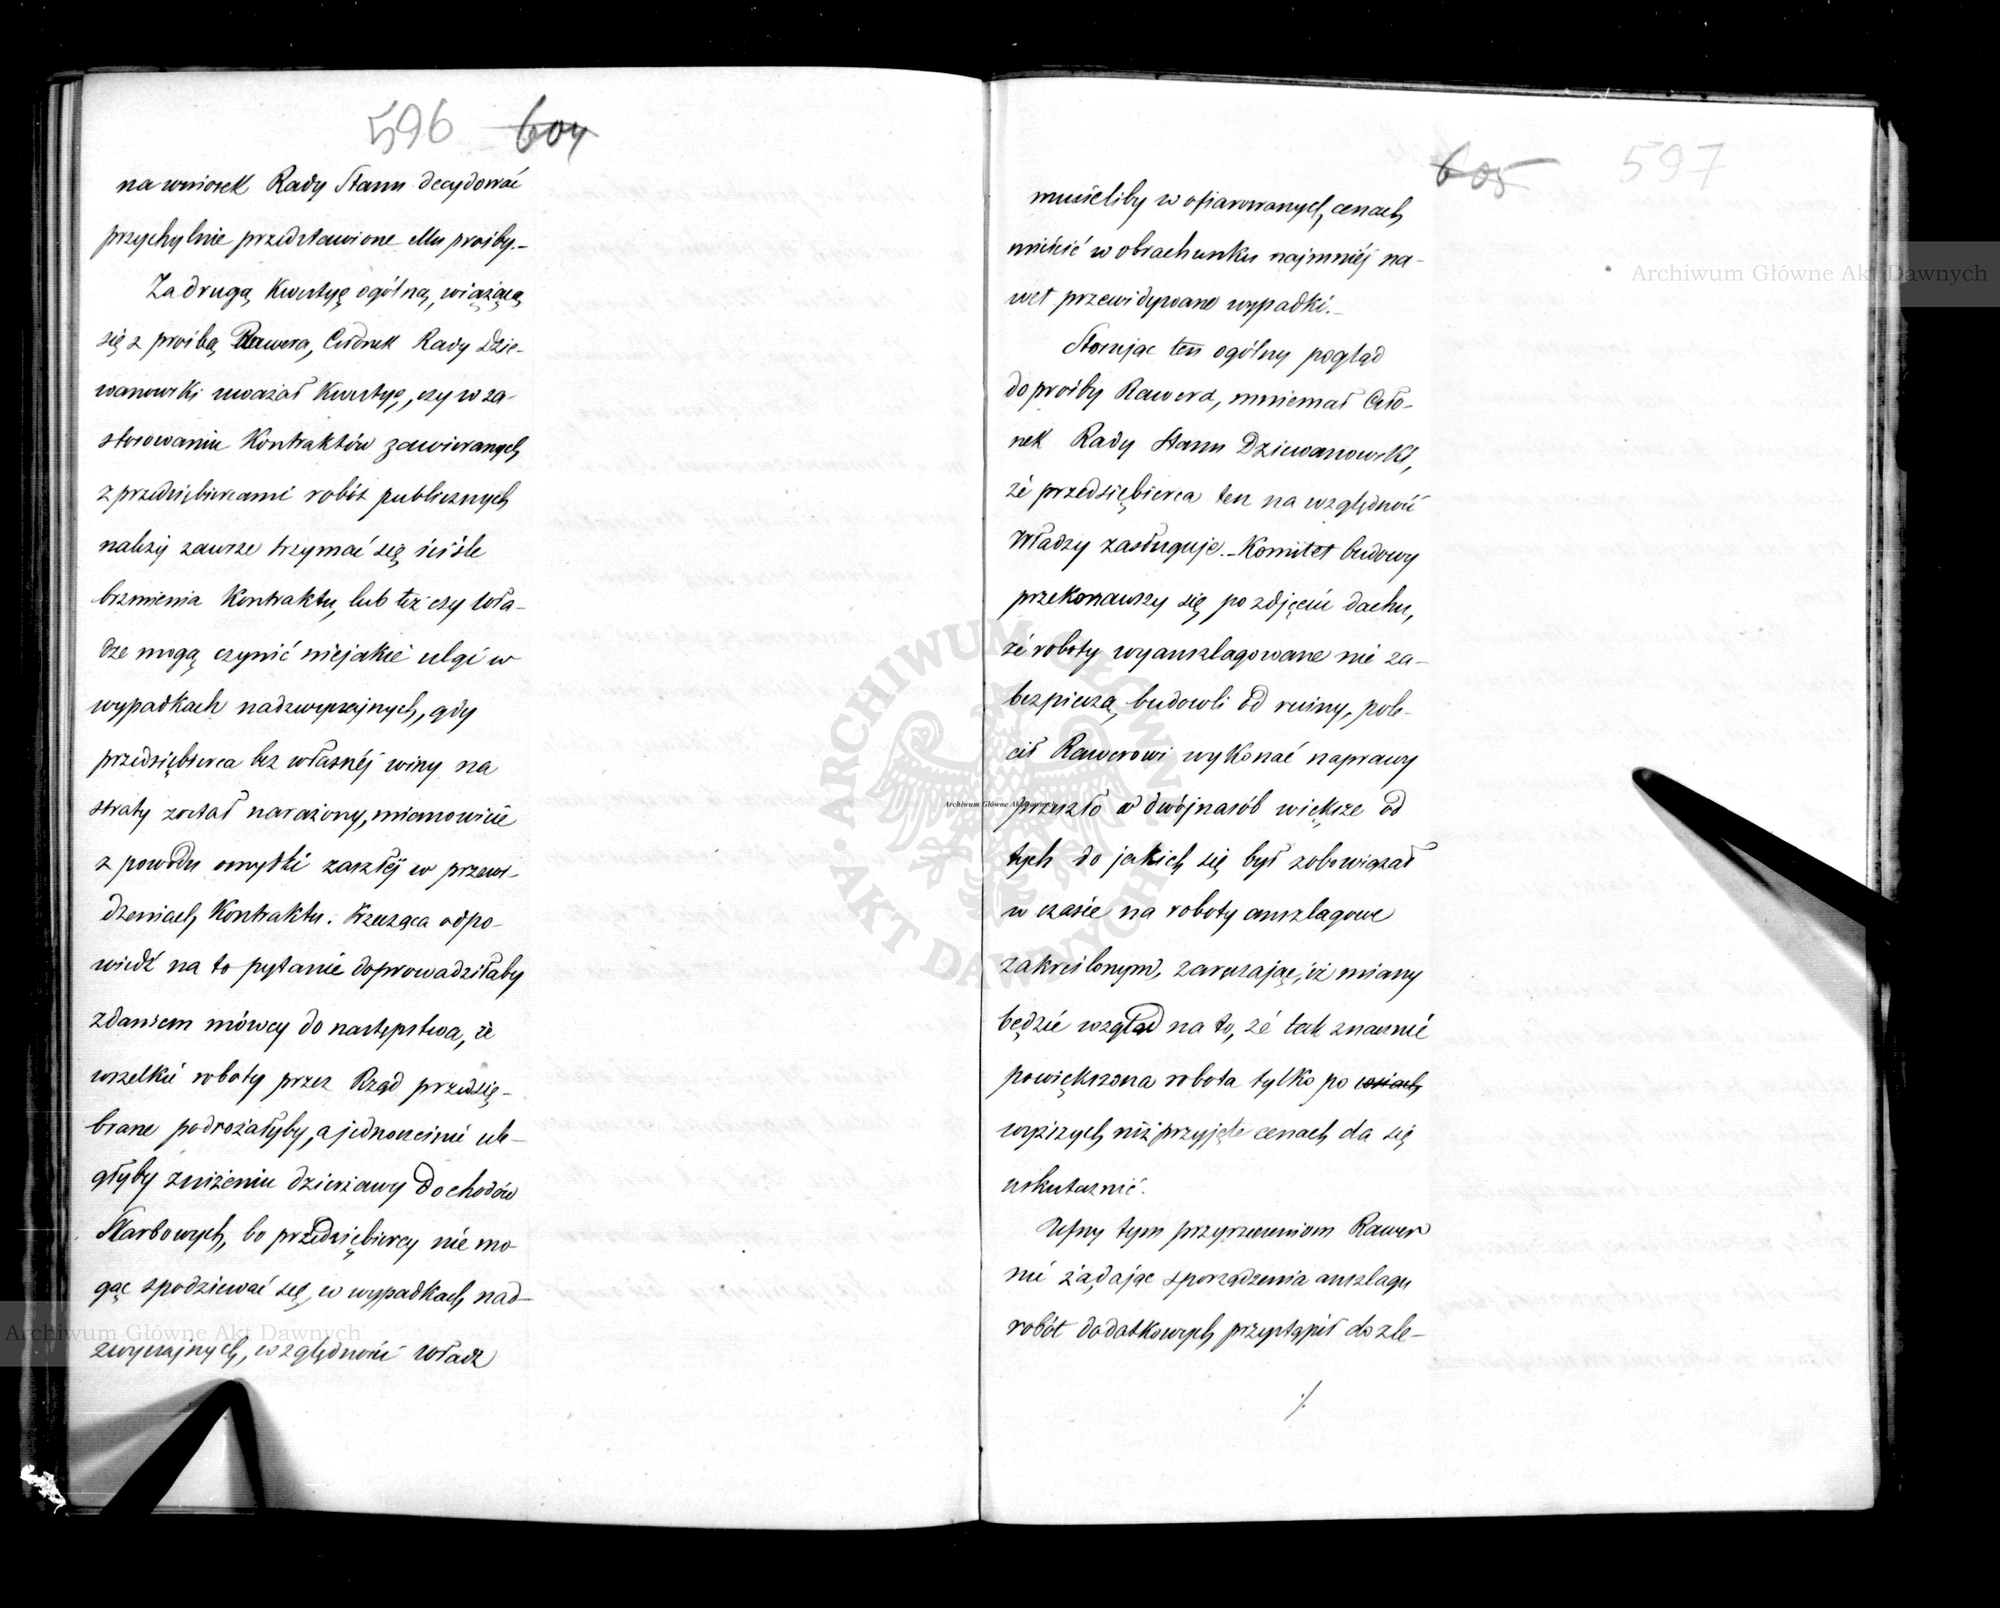 596 604
na wniosek Rady Stanu decydować
przychylnie przedstawione Mu prośby.–
Za drugą Kwestyę ogólną, wiążącą
się z prośbą Rawera, Członek Rady Dzie-
wanowski uważał Kwestyę, czy w za-
stosowaniu Kontraktów zawieranych
z przedsiębiercami robót publicznych
należy zawsze trzymać się ściśle
brzmienia Kontraktu, lub też czy Wła-
dze mogą czynić niejakié ulgi w
wypadkach nadzwyczajnych, gdy
przedsiębierca bez własnéj winy na
straty został narażony, mianowicie
z powodu omyłki zaszłéj w przewi-
dzeniach Kontraktu. Przecząca odpo-
wiedź na to pytanie doprowadziłaby
zdaniem mówcy do następstwa, że
wszelkie roboty przez Rząd przedsię-
brane podrożałyby, a jednocześnie ule-
głyby zniżeniu dzierżawy Dochodów
Skarbowych, bo przedsiębiercy nie mo
gąc spodziewać się, w wypadkach nad-
zwyczajnych, względności Władz
605 597
musieliby w ofiarowanych cenach
mieścić w obrachunku najmniéj na-
wet przewidywane wypadki.–
Stosując ten ogólny pogląd
do prośby Rawera, mniemał Czło-
nek Rady Stanu Dziewanowski,
że przedsiębierca ten na względność
Władzy zasługuje.– Komitet budowy
przekonawszy się po zdjęciu dachu,
że roboty wyanszlagowane nie za-
bezpieczą budowli od ruiny, pole-
cił Rawerowi wykonać naprawy
przeszło w dwójnasób większe od
tych do jakich się był zobowiązał
w czasie na roboty anszlagowe
zakreślonym, zaręczając, iż miany
będzie wzgląd na to, że tak znacznie
powiększona robota tylko po
wyższych niż przyjęte cenach da się
uskutecznić.
Ufny tym przyrzeczeniom Rawer
nie żądając sporządzenia anszlagu
robót dodatkowych przystąpił do zle-
./.
Archiwum Główne Akt Dawnych
Archiwum Główne Akt Dawnych
Archiwum Główne Akt Dawnych
ARCHIWUM GŁÓWNE • AKT DAWNYCH •